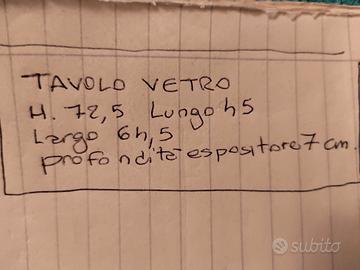 TAVOLO VETRO
H. 72,5 Lungo h5
Largo 6h,5
profondità espositore 7 cm.
subito